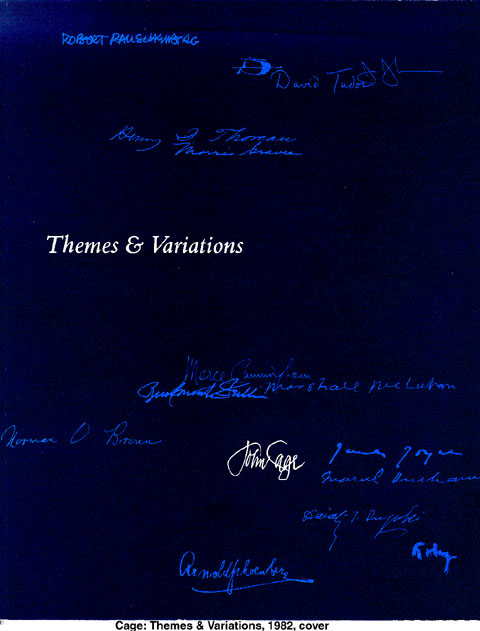 ROBERT RAUSCHENBERG
David Tudor
Henry D Thoreau
Morris Graves
Themes & Variations
Merce Cunningham
Buckminster Fuller Marshall McLuhan
Norman O Brown
John Cage James Joyce
Marcel Duchamp
Daisetz T. Suzuki
Arnold Schoenberg
Cage: Themes & Variations, 1982, cover